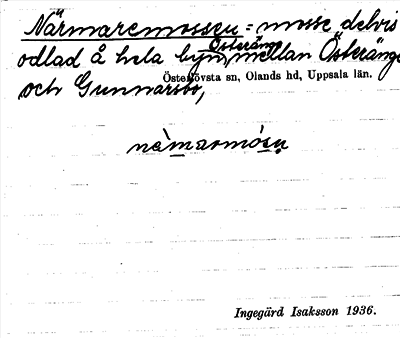 Närmaremossen = mosse delvis
odlad å hela byn Österänge, mellan Österänge
Österlövsta sn, Olands hd, Uppsala län.
och Gunnarsbo,
nèmarmósn
Ingegärd Isaksson 1936.